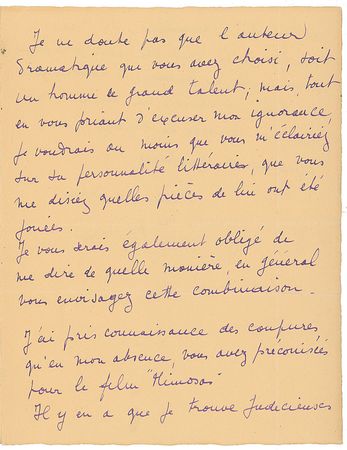 Je ne doute pas que l'auteur
dramatique que vous avez choisi, soit
un homme de grand talent; mais, tout
en vous priant d'excuser mon ignorance,
je voudrais au moins que vous m'éclairiez
sur sa personnalité littéraire, que vous
me disiez quelles pièces de lui ont été
jouées.
Je vous serais également obligé de
me dire de quelle manière, en général
vous envisagez cette combinaison.
J'ai pris connaissance des coupures
qu'en mon absence, vous avez préconisées
pour le film "Mimosas"
Il y en a que je trouve judicieuses